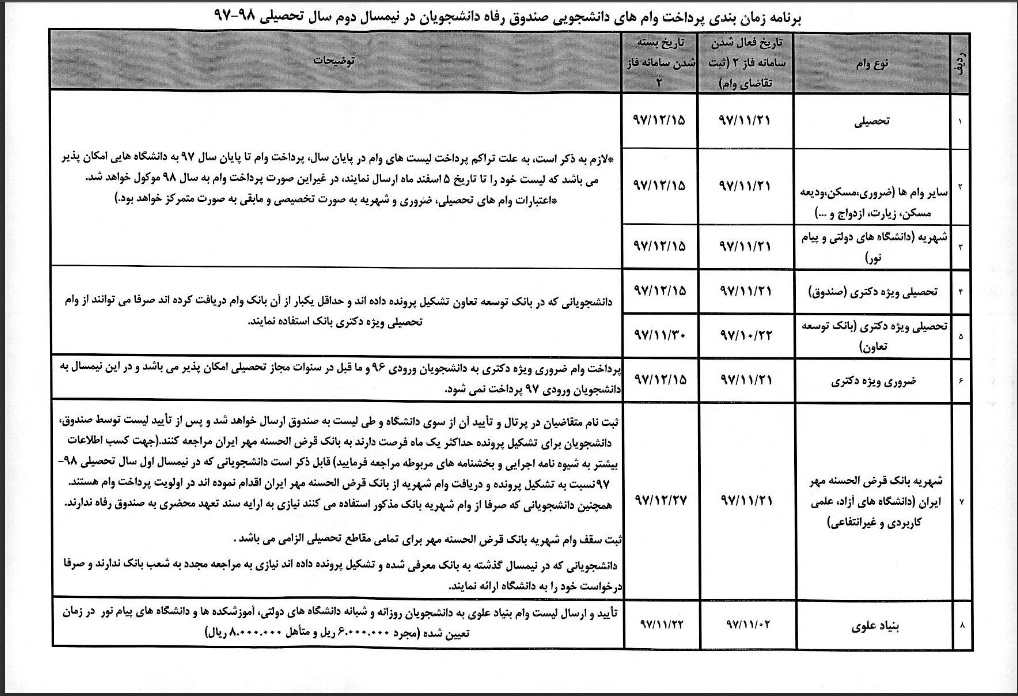 برنامه زمان بندی پرداخت وام های دانشجویی صندوق رفاه دانشجویان در نیمسال دوم سال تحصیلی ۹۸-۹۷
ردیف
نوع وام
تاریخ فعال شدن
سامانه فاز ۲ (ثبت
تقاضای وام)
تاریخ بسته
شدن سامانه فاز
۲
توضیحات
۱
تحصیلی
۹۷/۱۱/۲۱
۹۷/۱۲/۱۵
*لازم به ذکر است، به علت تراکم پرداخت لیست های وام در پایان سال، پرداخت وام تا پایان سال ۹۷ به دانشگاه هایی امکان پذیر
می باشد که لیست خود را تا تاریخ ۵ اسفند ماه ارسال نمایند، در غیراین صورت پرداخت وام به سال ۹۸ موکول خواهد شد.
*اعتبارات وام های تحصیلی، ضروری و شهریه به صورت تخصیصی و مابقی به صورت متمرکز خواهد بود.)
۲
سایر وام ها (ضروری،مسکن،ودیعه
مسکن، زیارت، ازدواج و ...)
۹۷/۱۱/۲۱
۹۷/۱۲/۱۵
۳
شهریه (دانشگاه های دولتی و پیام
نور)
۹۷/۱۱/۲۱
۹۷/۱۲/۱۵
۴
تحصیلی ویژه دکتری (صندوق)
۹۷/۱۱/۲۱
۹۷/۱۲/۱۵
دانشجویانی که در بانک توسعه تعاون تشکیل پرونده داده اند و حداقل یکبار از آن بانک وام دریافت کرده اند صرفا می توانند از وام
تحصیلی ویژه دکتری بانک استفاده نمایند.
۵
تحصیلی ویژه دکتری (بانک توسعه
تعاون)
۹۷/۱۰/۲۲
۹۷/۱۱/۳۰
۶
ضروری ویژه دکتری
۹۷/۱۱/۲۱
۹۷/۱۲/۱۵
پرداخت وام ضروری ویژه دکتری به دانشجویان ورودی ۹۶ و ما قبل در سنوات مجاز تحصیلی امکان پذیر می باشد و در این نیمسال به
دانشجویان ورودی ۹۷ پرداخت نمی شود.
۷
شهریه بانک قرض الحسنه مهر
ایران (دانشگاه های آزاد، علمی
کاربردی و غیرانتفاعی)
۹۷/۱۱/۲۱
۹۷/۱۲/۲۷
ثبت نام متقاضیان در پرتال و تأیید آن از سوی دانشگاه و طی لیست به صندوق ارسال خواهد شد و پس از تأیید لیست توسط صندوق،
دانشجویان برای تشکیل پرونده حداکثر یک ماه فرصت دارند به بانک قرض الحسنه مهر ایران مراجعه کنند.(جهت کسب اطلاعات
بیشتر به شیوه نامه اجرایی و بخشنامه های مربوطه مراجعه فرمایید) قابل ذکر است دانشجویانی که در نیمسال اول سال تحصیلی ۹۸-
۹۷ نسبت به تشکیل پرونده و دریافت وام شهریه از بانک قرض الحسنه مهر ایران اقدام نموده اند در اولویت پرداخت وام هستند.
همچنین دانشجویانی که صرفا از وام شهریه بانک مذکور استفاده می کنند نیازی به ارایه سند تعهد محضری به صندوق رفاه ندارند.
ثبت سقف وام شهریه بانک قرض الحسنه مهر برای تمامی مقاطع تحصیلی الزامی می باشد .
دانشجویانی که در نیمسال گذشته به بانک معرفی شده و تشکیل پرونده داده اند نیازی به مراجعه مجدد به شعب بانک ندارند و صرفا
درخواست خود را به دانشگاه ارائه نمایند.
۸
بنیاد علوی
۹۷/۱۱/۰۲
۹۷/۱۱/۲۲
تأیید و ارسال لیست وام بنیاد علوی به دانشجویان روزانه و شبانه دانشگاه های دولتی، آموزشکده ها و دانشگاه های پیام نور در زمان
تعیین شده (مجرد ۶.۰۰۰.۰۰۰ ریل و متأهل ۸.۰۰۰.۰۰۰ ریال)